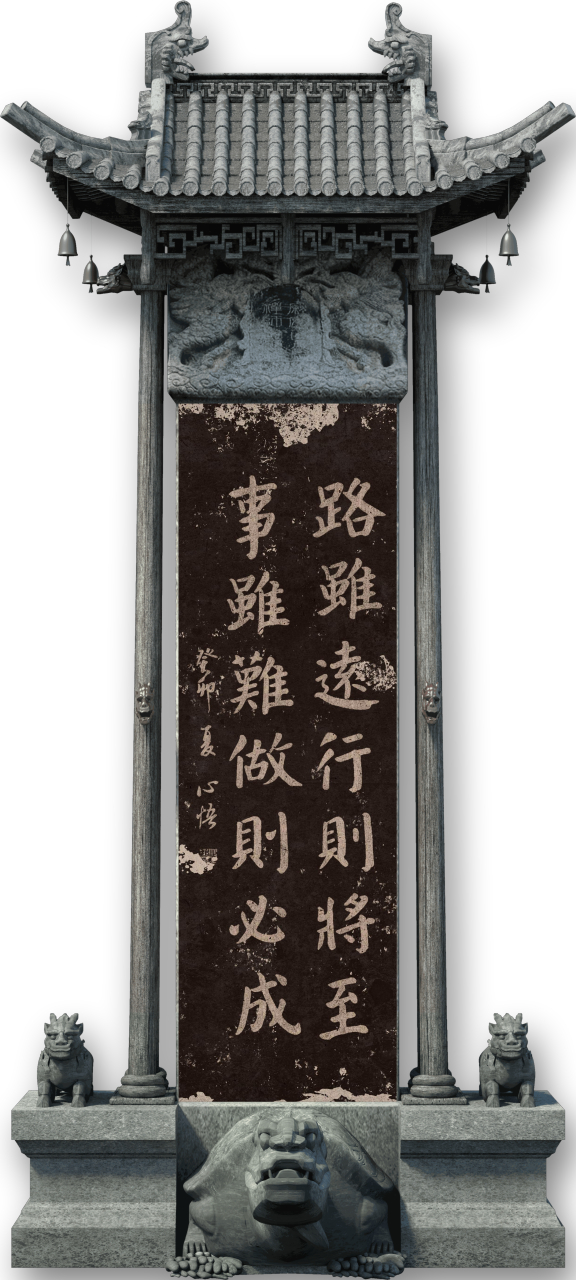 路雖遠行則將至
事雖難做則必成
癸卯夏心悟